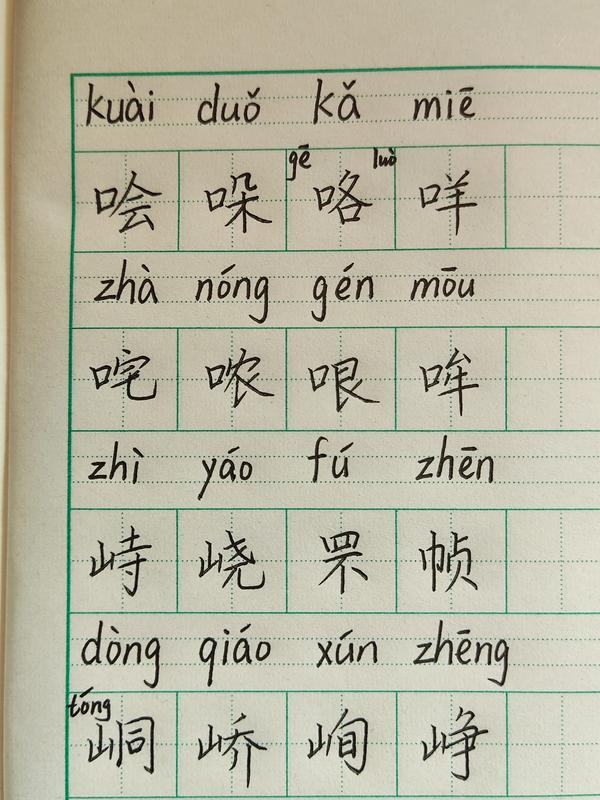 kuài duǒ kǎ miē
gē luò
哙 哚 咯 咩
zhà nóng gén mōu
咤 哝 哏 哞
zhì yáo fú zhēn
峙 峣 罘 帧
dòng qiáo xún zhēng
tóng
峒 峤 峋 峥